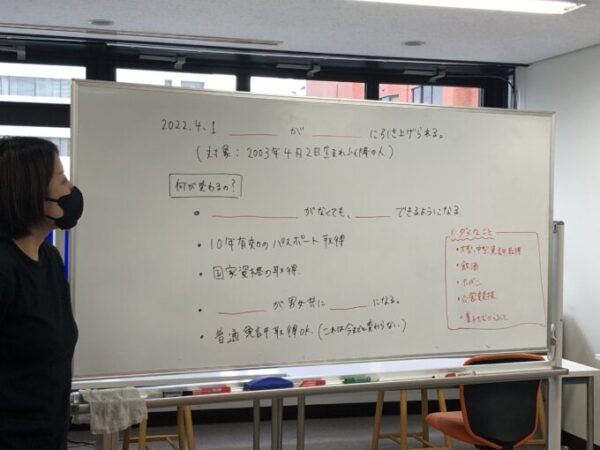 2022.4.1 ______ が ______ に引き上げられる。
(対象: 2003年4月2日生まれ以降の人)
何が変わるの?
• ______ がなくても、____ できるようになる
• 10年有効のパスポート取得
• 国家資格の取得
• ______ が男女共に ____ になる。
• 普通免許取得OK (これは今までと変わらない)
ダメなこと
• 大型、中型免許取得
• 飲酒
• タバコ
• 公営競技